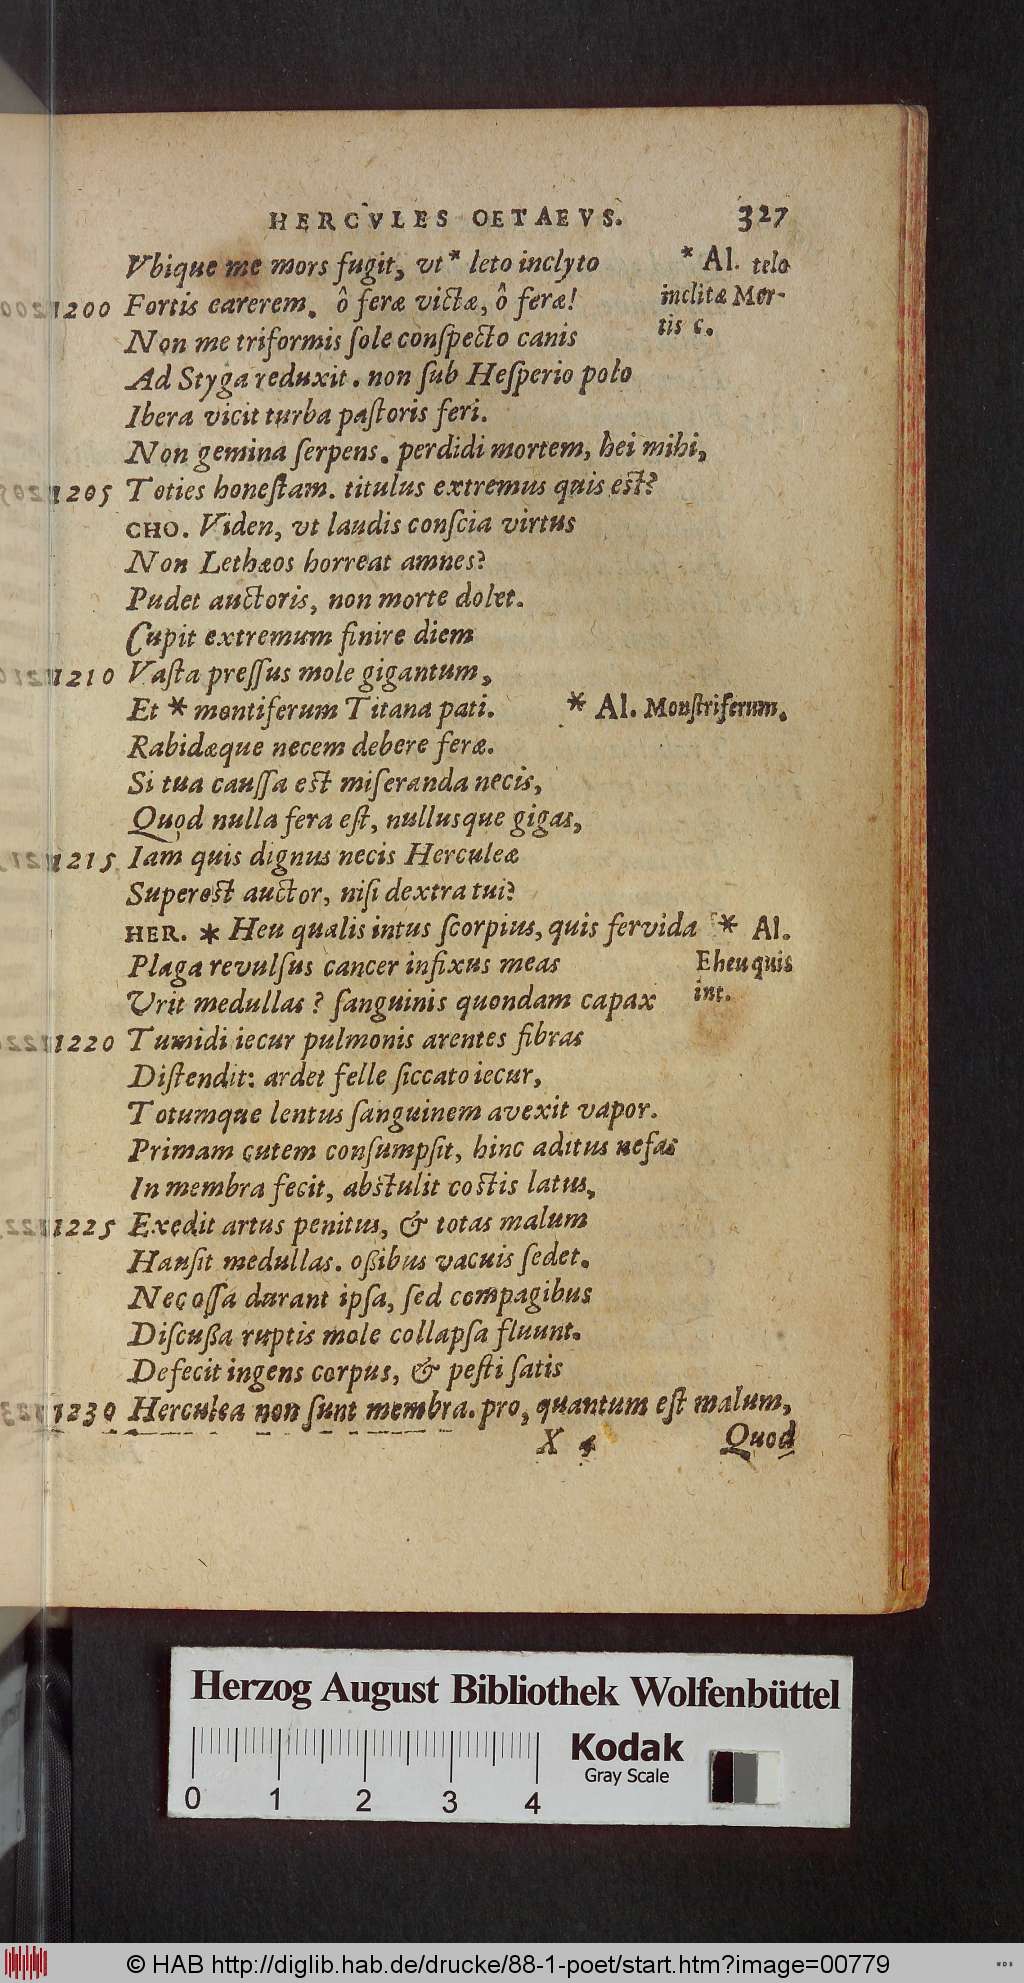 HERCVLES OETAEVS. 327
Vbique me mors fugit, vt * leto inclyto
* Al. telo
inclitæ Mor-
tis c.
1200 Fortis carerem. ô feræ victæ, ô feræ!
Non me triformis ſole conſpecto canis
Ad Styga reduxit. non ſub Heſperio polo
Ibera vicit turba paſtoris feri.
Non gemina ſerpens. perdidi mortem, hei mihi,
1205 Toties honeſtam. titulus extremus quis est?
CHO. Viden, vt laudis conſcia virtus
Non Lethæos horreat amnes?
Pudet auctoris, non morte dolet.
Cupit extremum finire diem
1210 Vaſta preſſus mole gigantum,
Et * montiferum Titana pati.
* Al. Monſtriferum.
Rabidæque necem debere feræ.
Si tua cauſſa est miſeranda necis,
Quod nulla fera eſt, nullusque gigas,
1215 Iam quis dignus necis Herculeæ
Superest auctor, niſi dextra tui?
HER. * Heu qualis intus ſcorpius, quis fervida
* Al.
Eheu quis
int.
Plaga revulſus cancer infixus meas
Urit medullas? ſanguinis quondam capax
1220 Tumidi iecur pulmonis arentes fibras
Diſtendit: ardet felle ſiccato iecur,
Totumque lentus ſanguinem avexit vapor.
Primam cutem conſumpſit, hinc aditus nefas
In membra fecit, abstulit costis latus,
1225 Exedit artus penitus, & totas malum
Hauſit medullas. oßibus vacuis ſedet.
Nec oſſa durant ipſa, ſed compagibus
Diſcußa ruptis mole collapſa fluunt.
Defecit ingens corpus, & peſti ſatis
1230 Herculea non ſunt membra. pro, quantum eſt malum,
X 4 Quod
Herzog August Bibliothek Wolfenbüttel
Kodak
Gray Scale
0 1 2 3 4
© HAB http://diglib.hab.de/drucke/88-1-poet/start.htm?image=00779